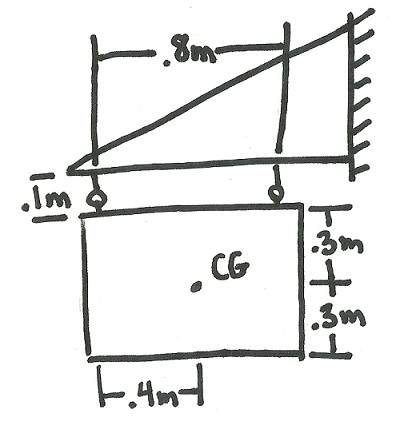 .8m
.1m
CG
.3m
.3m
.4m